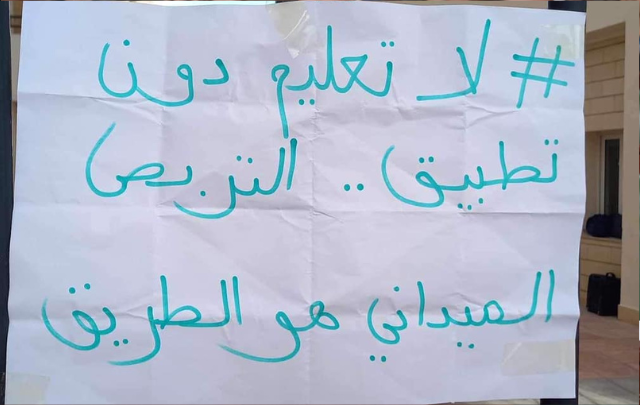 # لا تعليم دون
تطبيق .. التربص
الميداني هو الطريق